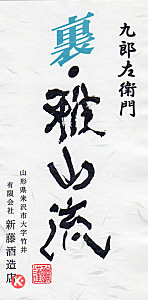 九郎左衛門
裏・雅山流
山形県米沢市大字竹井
有限会社 新藤酒造店